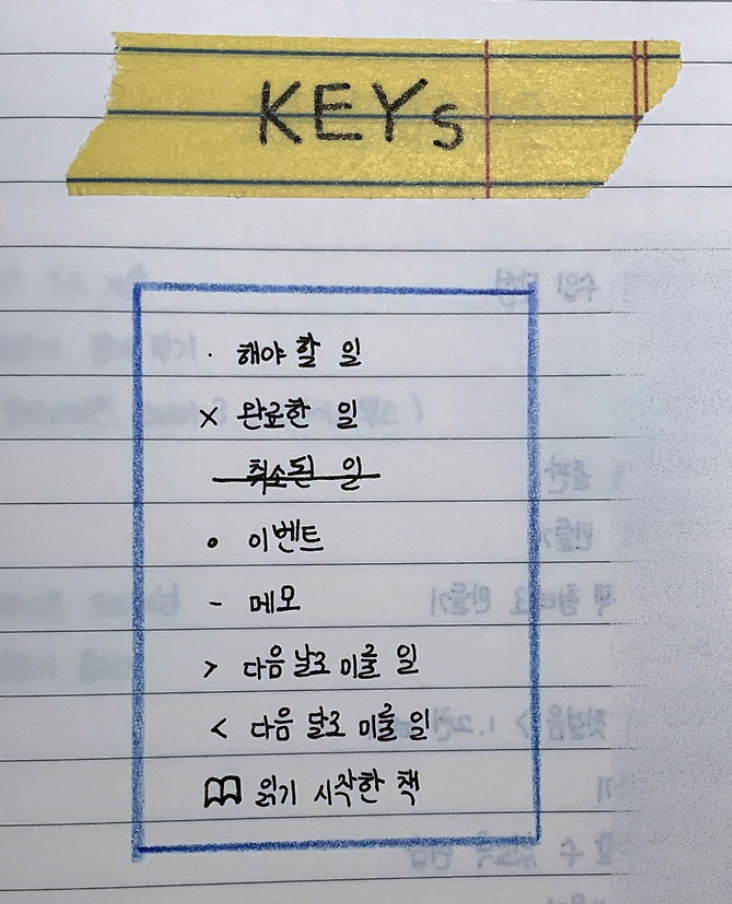 KEYs
· 해야 할 일
× 완료한 일
취소된 일
∘ 이벤트
- 메모
> 다음 날로 미룰 일
< 다음 달로 미룰 일
읽기 시작한 책